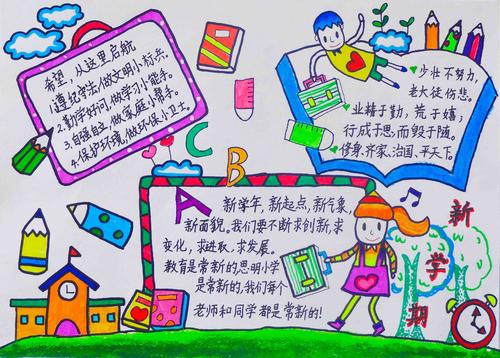 希望，从这里启航
1.遵纪守法，做文明小标兵。
2.勤学好问，做学习小能手。
3.自强自立，做家庭小帮手。
4.保护环境，做环保小卫士。
少壮不努力，
老大徒伤悲。
业精于勤，荒于嬉；
行成于思，而毁于随。
修身、齐家、治国、平天下。
A
B
C
新学年，新起点，新气象，
新面貌，我们要不断求创新，求
变化，求进取，求发展。
教育是常新的思明小学
是常新的，我们每个
老师和同学都是常新的！
新
学
期